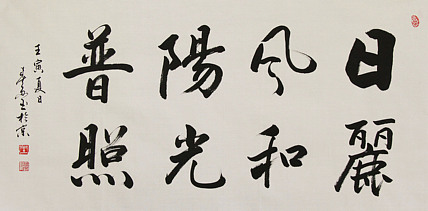 日麗
风和
陽光
普照
壬寅夏日